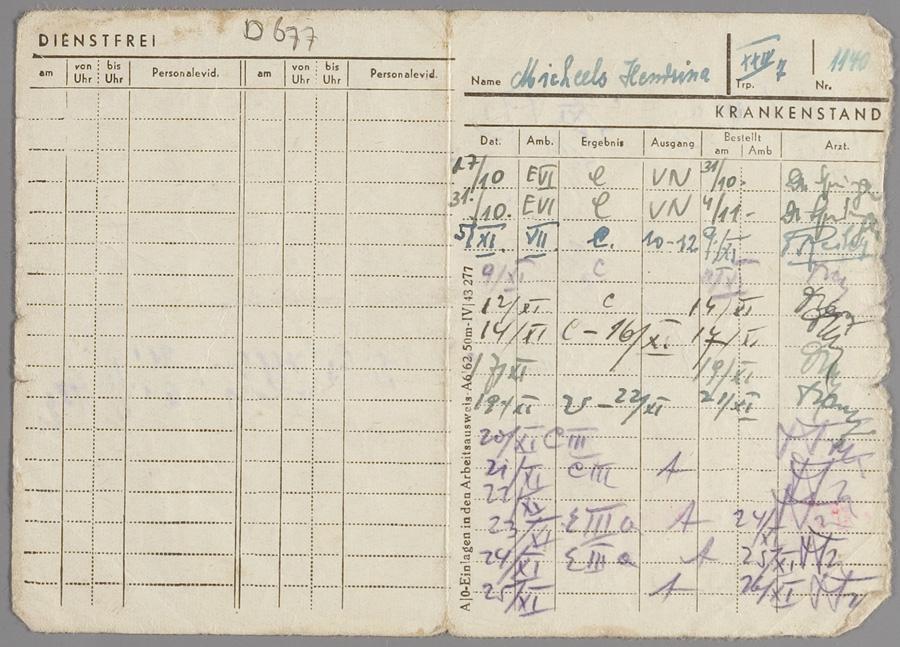 D 677
DIENSTFREI
am von Uhr bis Uhr Personalevid. am von Uhr bis Uhr Personalevid.
Name Micheels Hendrina XXIV/7 Trp. 1140 Nr.
KRANKENSTAND
Dat. Amb. Ergebnis Ausgang Bestellt am Amb Arzt.
17/10 EVI C VN 31/10.
31./10. EVI C VN 4/11 -
5/XI. VII. C. 10-12 9/XI
9/XI C
12/XI C 14/XI
14/XI C - 16/XI 17/XI
17/XI 19/XI
19/XI - 22/XI 21/XI
20/XI C III
21/XI C III A
22/XI
23/XI E III a A 24/XI
24/XI E III a A 25/XI
25/XI A 26/XI
A|0-Einlagen in den Arbeitsausweis-A6 62 50m-IV|43 277